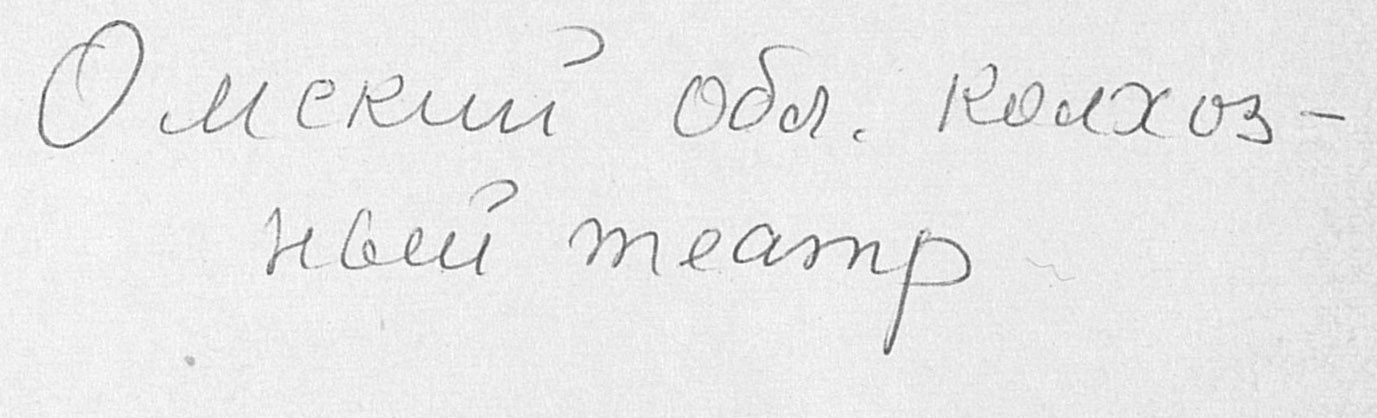 Омский обл. колхоз-
ный театр